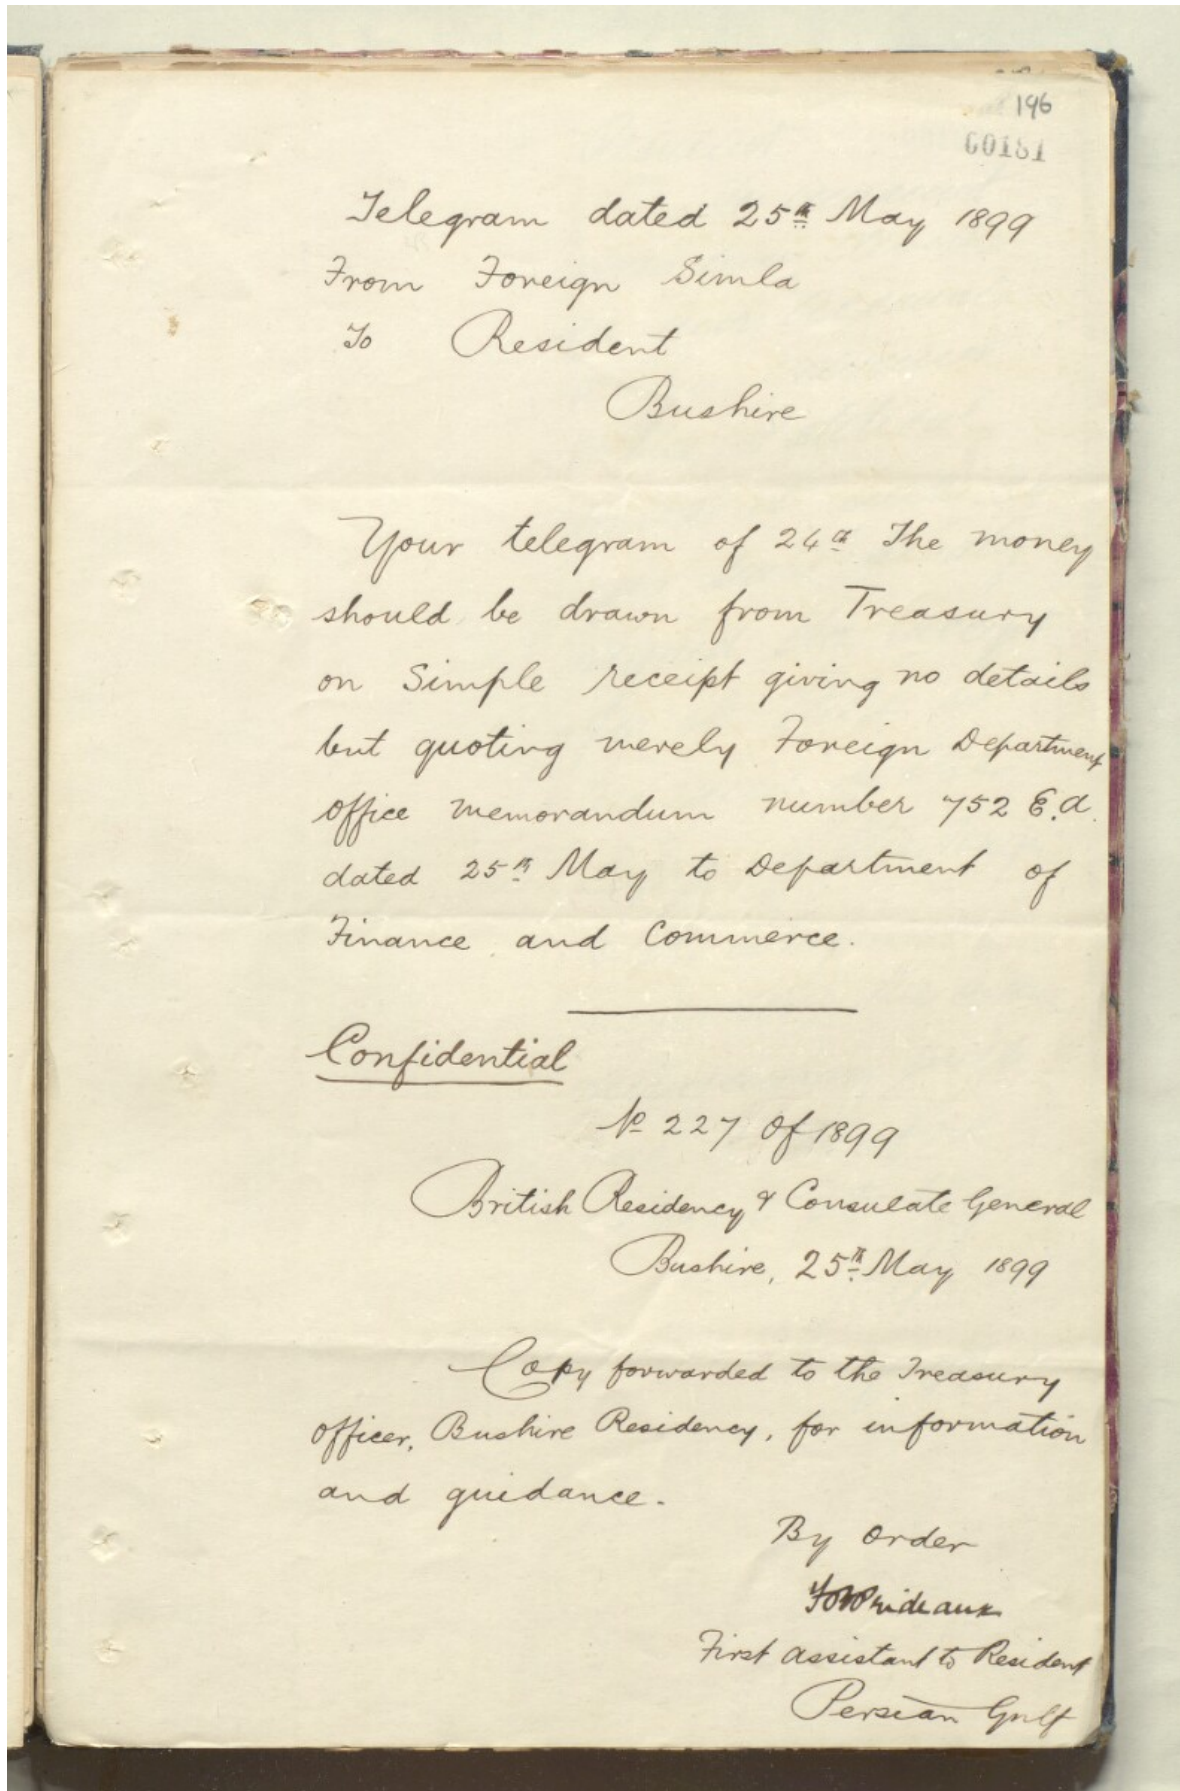 196
00181
Telegram dated 25th May 1899
From Foreign Simla
To Resident
Bushire
Your telegram of 24th The money
should be drawn from Treasury
on Simple receipt giving no details
but quoting merely Foreign Department
Office memorandum number 752 E.A.
dated 25th May to Department of
Finance and Commerce.
Confidential
No 227 of 1899
British Residency & Consulate General
Bushire, 25th May 1899
Copy forwarded to the Treasury
Officer, Bushire Residency, for information
and guidance.
By order
Prideaux
First Assistant to Resident
Persian Gulf